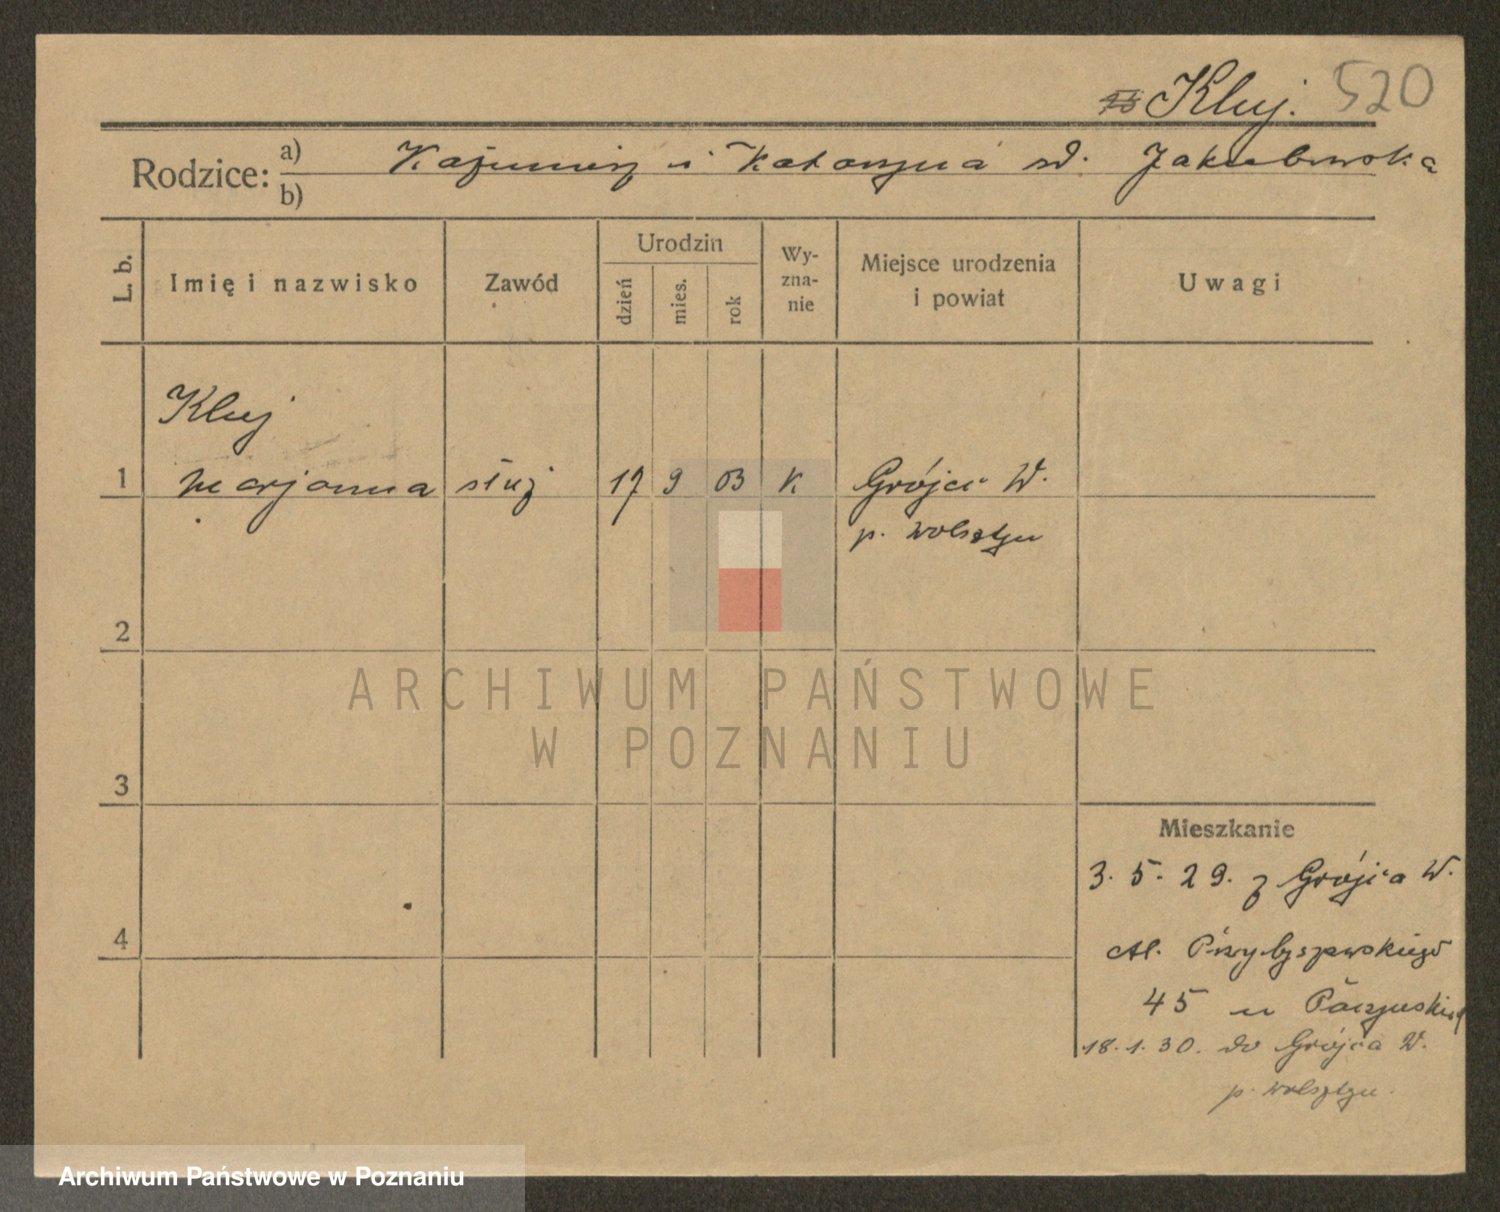 Kluj. 520
Rodzice: a) Kaźmierz i Katarzyna zd. Jakubowska
b)
L. b. Imię i nazwisko Zawód Urodzin dzień mies. rok Wy-zna-nie Miejsce urodzenia i powiat Uwagi
Kluj
1 Marjanna służ 17 9 03 K Grójec W.
p. Wolsztyn
2
ARCHIWUM PAŃSTWOWE
W POZNANIU
3
Mieszkanie
3. 5. 29. z Grójca W.
4
Al. Przybyszewskiego
45 u
18. 1. 30. do Grójca W.
p. Wolsztyn.
Archiwum Państwowe w Poznaniu